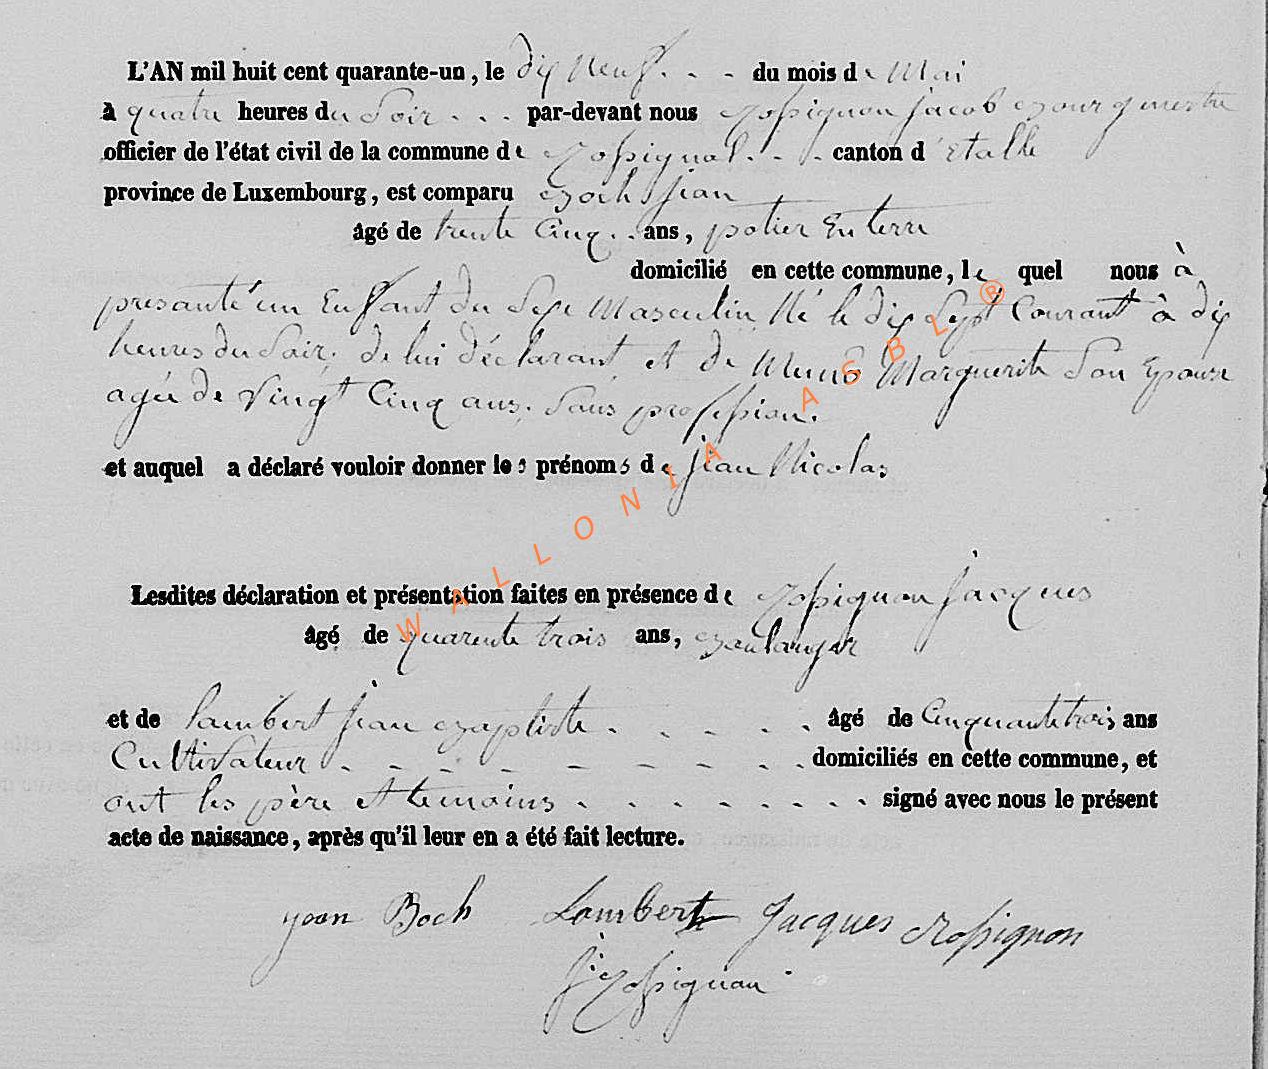 L'AN mil huit cent quarante-un, le dix Neuf . . - du mois de Mai
à quatre heures du Soir . . . par-devant nous Rossignon jacob Bourgmestre
officier de l'état civil de la commune de Rossignol . . . canton d'Etalle
province de Luxembourg, est comparu Boch jean
âgé de trente Cinq . . ans, potier En terre
domicilié en cette commune, le quel nous à
presanté un Enfant du Sexe Masculin Né le dix Sept Courant à dix
heures du Soir, de lui déclarant, et de Muno Marguerite Son Epouse
agée de Vingt Cinq ans. Sans profession.
et auquel a déclaré vouloir donner les prénoms de jean Nicolas
Lesdites déclaration et présentation faites en présence de Rossignon jacques
âgé de quarente trois ans, Boulanger
et de Lambert jean Baptiste . - - - . . âgé de Cinquante trois ans
Cultivateur - - - - - - - - . . domiciliés en cette commune, et
ont les père et temoins . . . . . . . . signé avec nous le présent
acte de naissance, après qu'il leur en a été fait lecture.
jean Boch Lambert Jacques Rossignon
j. Rossignon
WALLONIA ASBL ®